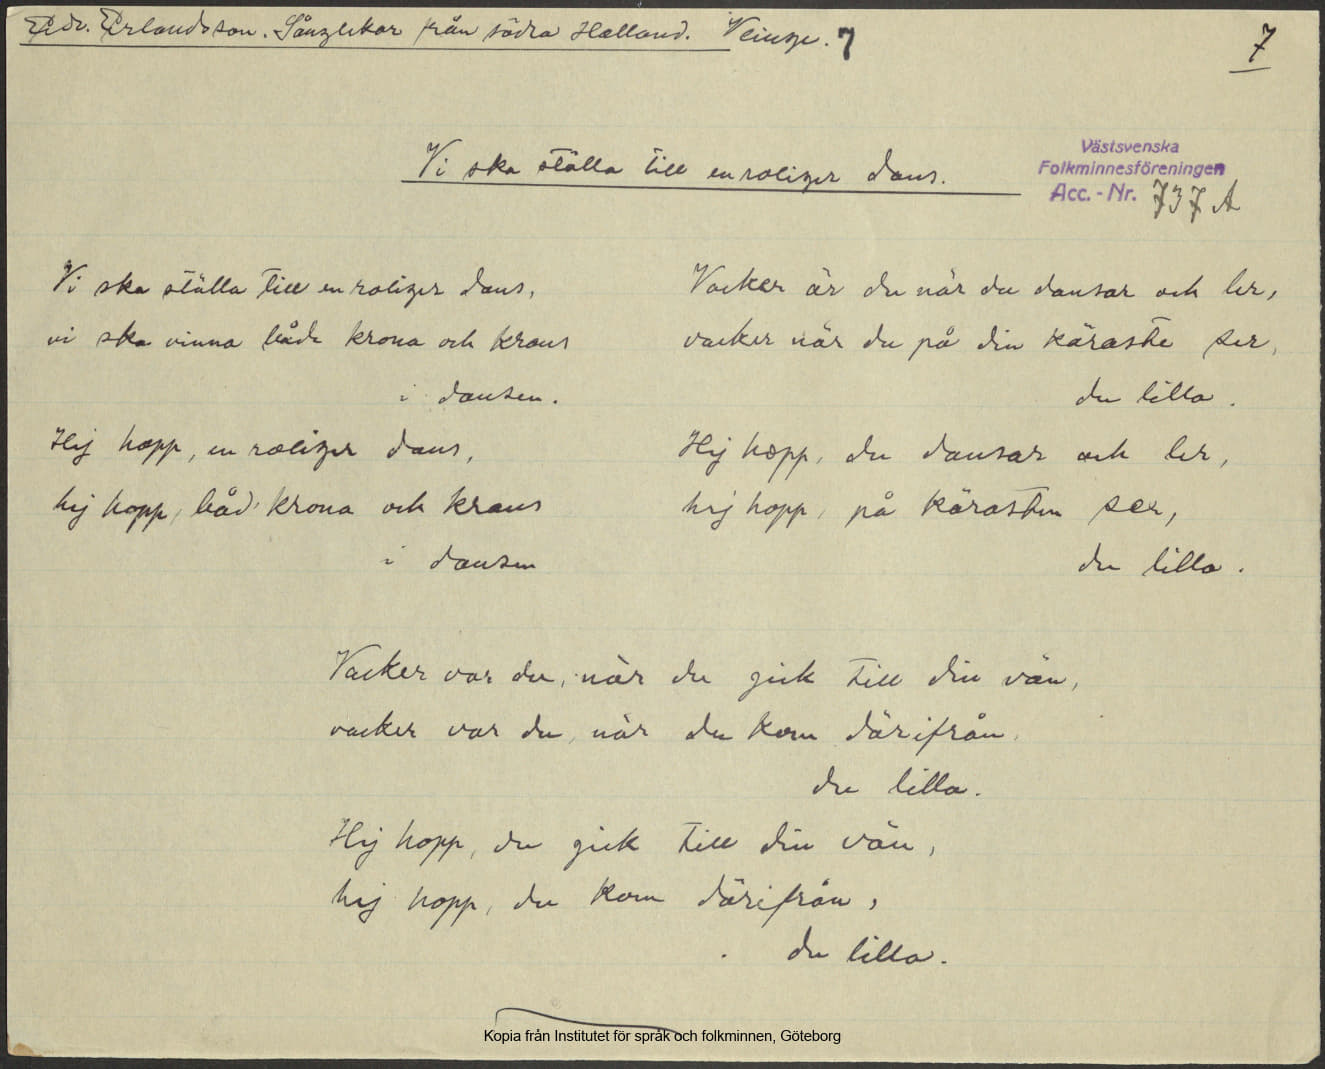 Edv. Erlandsson. Sånglekar från södra Halland. Veinge. 7
7
Vi ska ställa till en roliger dans.
Västsvenska
Folkminnesföreningen
Acc. - Nr. 737 A
Vi ska ställa till en roliger dans,
vi ska vinna både krona och krans
i dansen.
Hej hopp, en roliger dans,
hej hopp, båd' krona och krans
i dansen
Vacker är du när du dansar och ler,
vacker när du på din käraste ser,
du lilla.
Hej hopp, du dansar och ler,
hej hopp, på kärasten ser,
du lilla.
Vacker var du, när du gick till din vän,
vacker var du, när du kom därifrån,
du lilla.
Hej hopp, du gick till din vän,
hej hopp, du kom därifrån,
du lilla.
Kopia från Institutet för språk och folkminnen, Göteborg